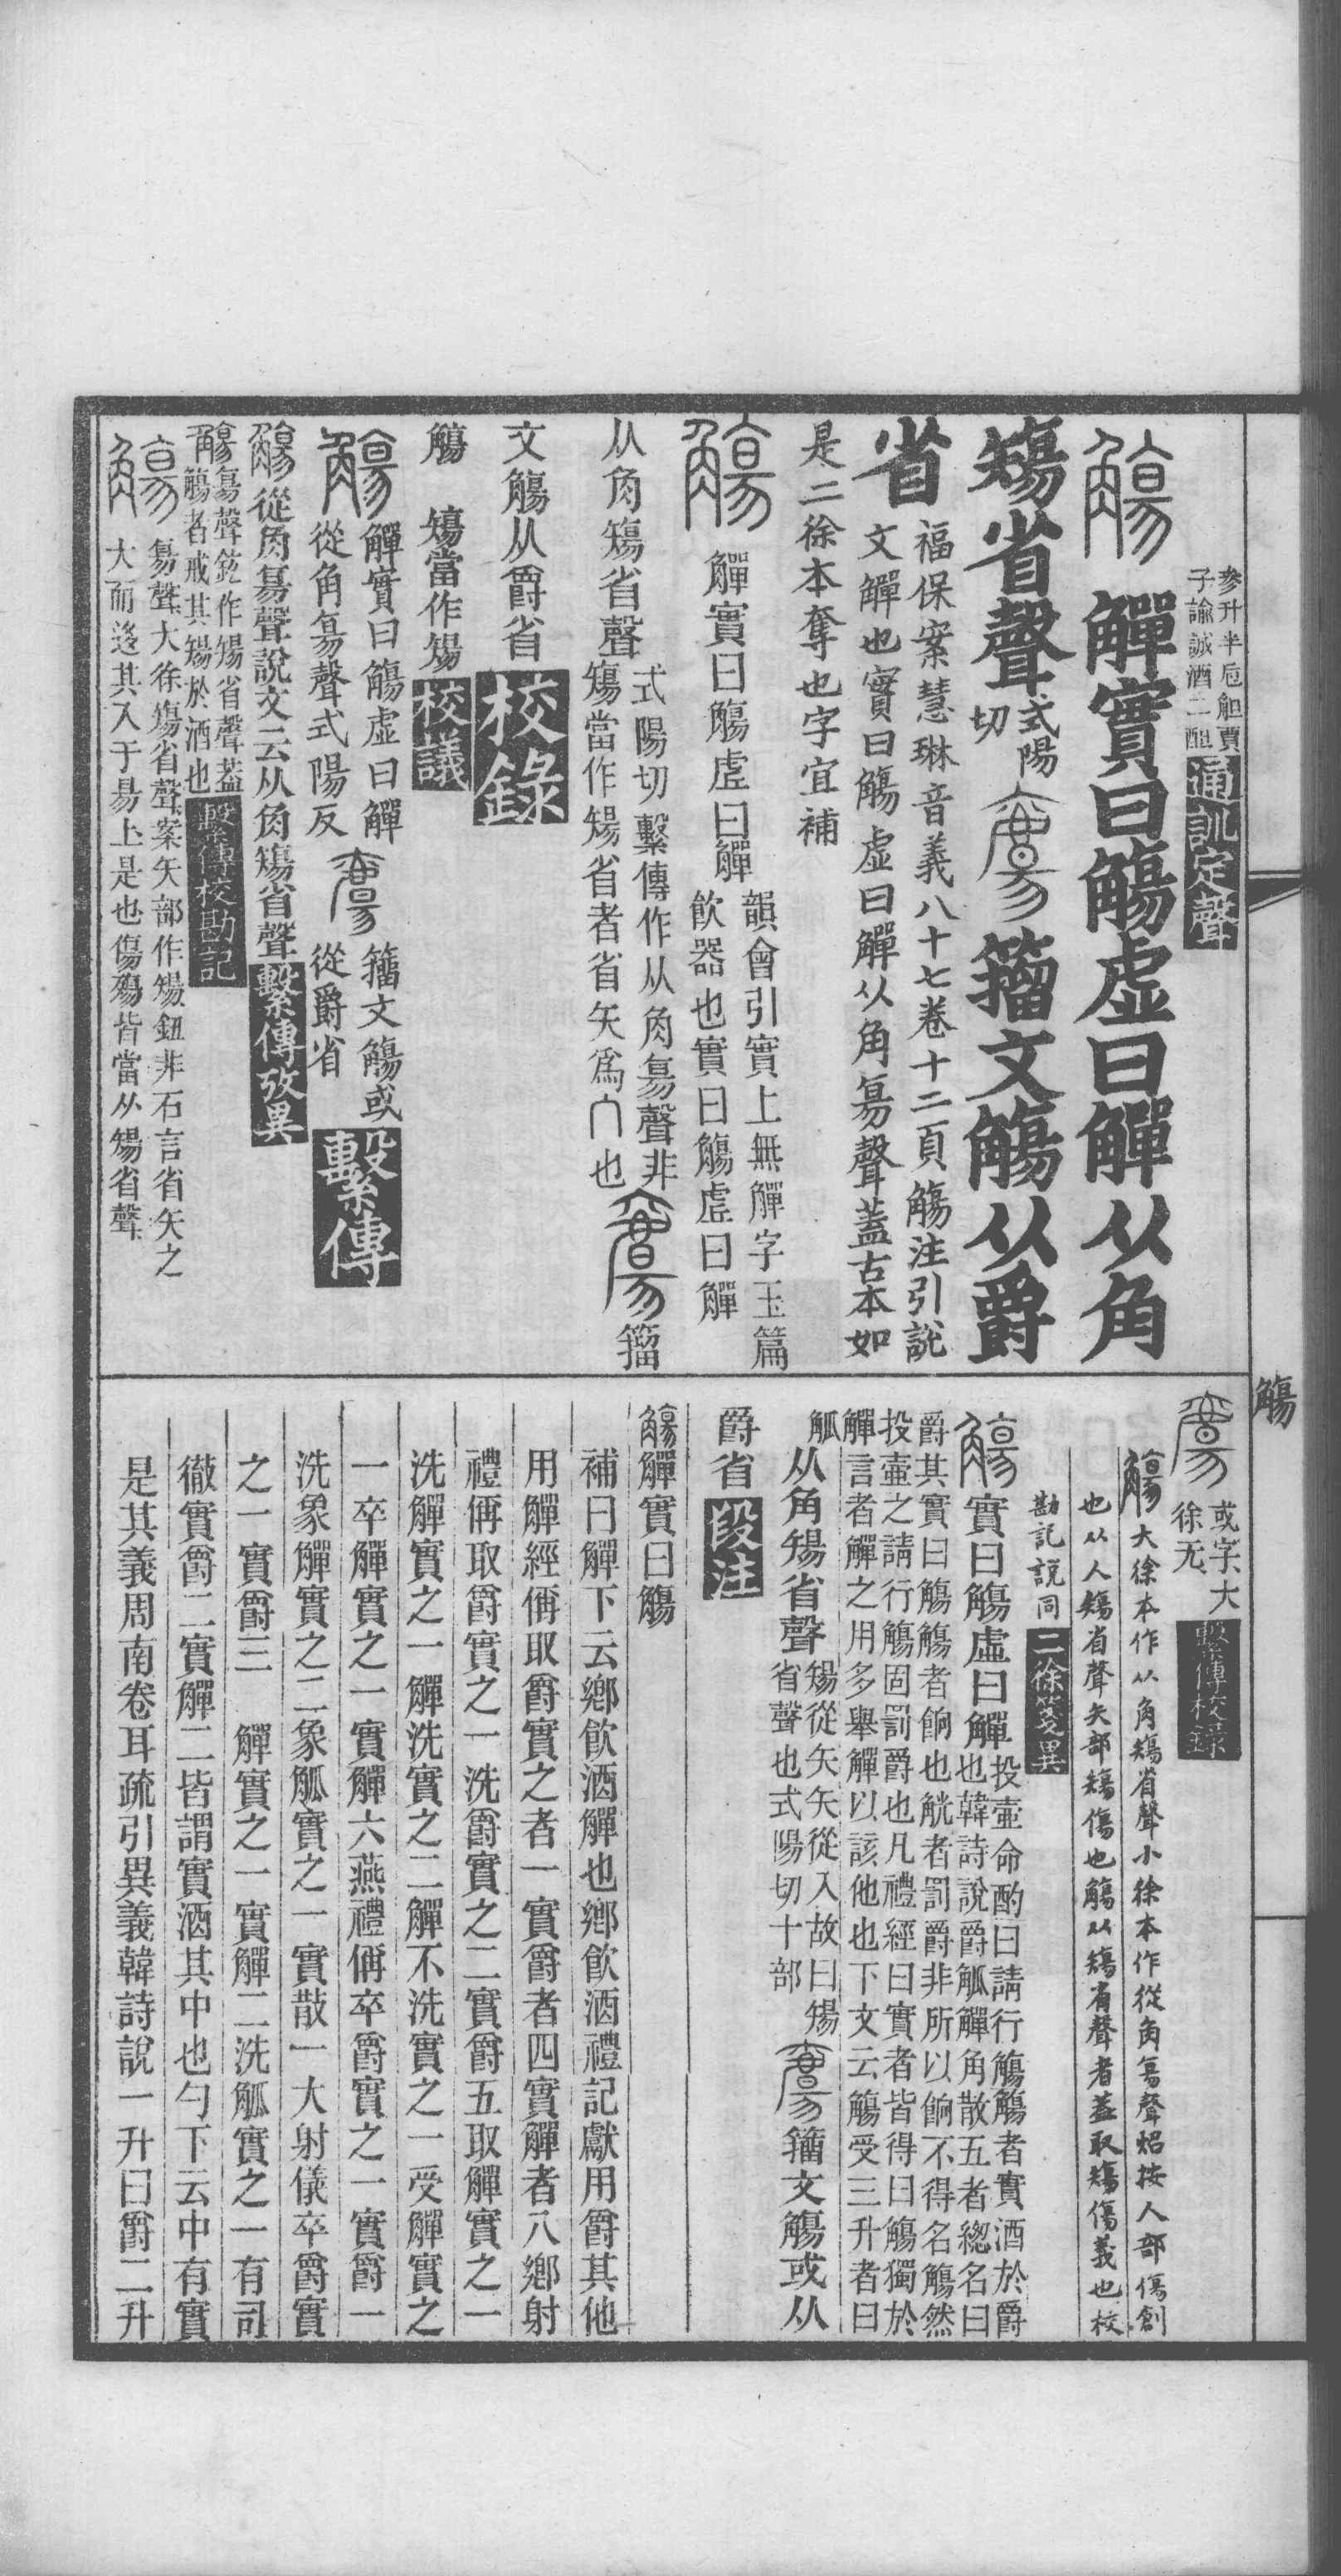 參升半卮觛賈
子諭誠酒二䣯
通訓定聲
觴 觶實曰觴虛曰觶从角
𥏻省聲式陽切 籀文觴从爵
省
福保案慧琳音義八十七卷十二頁觴注引說
文觶也實曰觴虛曰觶从角𬀷聲蓋古本如
是二徐本奪也字宜補
觴 觶實曰觴虛曰觶
韻會引實上無觶字玉篇
飲器也實曰觴虛曰觶
从角𥏻省聲
式陽切繫傳作从角𬀷聲非
𥏻當作𥏫省者省矢爲𠆢也
籀
文觴从爵省 校錄
觴 𥏻當作𥏫 校議
觴 觶實曰觴虛曰觶
從角𬀷聲式陽反
籀文觴或
從爵省
繫傳
觴從角𬀷聲說文云从角𥏻省聲 繫傳攷異
觴𬀷聲鈔作𥏫省聲蓋
觴者戒其𥏫於酒也
繫傳校勘記
觴 𬀷聲大徐𥏻省聲案矢部作𥏫鈕非石言省矢之
大而迻其入于昜上是也傷殤皆當从𥏫省聲
觴
或字大
徐无
繫傳校錄
觴大徐本作从角𥏻省聲小徐本作從角𬀷聲炤按人部傷創
也从人𥏻省聲矢部𥏻傷也觴从𥏻省聲者蓋取𥏻傷義也校
勘記說同 二徐箋異
觴 實曰觴虛曰觶
投壷命酌曰請行觴觴者實酒於爵
也韓詩說爵觚觶角散五者緫名曰
爵其實曰觴觴者餉也觥者罰爵非所以餉不得名觴然
投壷之請行觴固罰爵也凡禮經曰實者皆得曰觴獨於
觶言者觶之用多舉觶以該他也下文云觴受三升者曰
觚
从角𥏫省聲
𥏫從矢矢從入故曰𥏫
省聲也式陽切十部
籀文觴或从
爵省 段注
觴觶實曰觴
補曰觶下云鄉飮酒觶也鄉飮酒禮記獻用爵其他
用觶經偁取爵實之者一實爵者四實觶者八鄉射
禮偁取爵實之一洗爵實之二實爵五取觶實之一
洗觶實之一觶洗實之二觶不洗實之一受觶實之
一卒觶實之一實觶六燕禮偁卒爵實之一實爵一
洗象觶實之二象觚實之一實散一大射儀卒爵實
之一實爵三觶實之一實觶二洗觚實之一有司
徹實爵二實觶二皆謂實酒其中也勺下云中有實
是其義周南卷耳疏引異義韓詩說一升曰爵二升